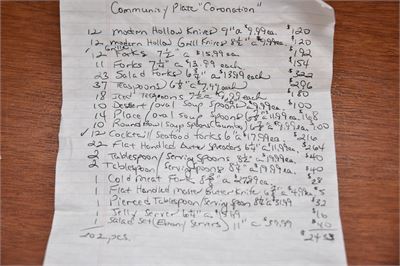 Community Plate "Coronation"
12 modern Hollow Knives 9" @ $9.99ea. $120
12 modern Hollow Grill Knives 8½" @ $9.99ea $120
12 Grille Forks 7½" @ $15.99ea $192
11 Forks 7¼" @ $13.99 each $154
23 Salad Forks 6¾" @ $13.99 each $322
37 Teaspoons 6" @ $7.99 each $296
18 Iced Teaspoons 7½" @ $9.99 each $180
10 Dessert/oval Soup Spoons $9.99ea. $100
14 Place/oval Soup Spoons @ $11.99ea $168
10 Round Bowl Soup Spoons (Gumbo) $9.99ea $100
✓ 12 Cocktail/Seafood Forks 6" @ $17.99ea $216
22 Flat Handled Butter Spreaders 6¼" @ 11.99ea $264
2 Tablespoon/Serving Spoons 8½" @ $19.99ea $40
2 Tablespoon/Serving Spoons 8¼" @ 19.99ea $40
1 Cold Meat Fork 8¾" @ $
1 Flat Handled Master Butter Knife @ $4.99ea $5
1 Pierced Tablespoon/Serving Spoon 8½" $32
1 Jelly Server 6¼" @ $16
1 Salad Set (Ebony/Servers) 11" @ $39.99 $40
202 pcs.